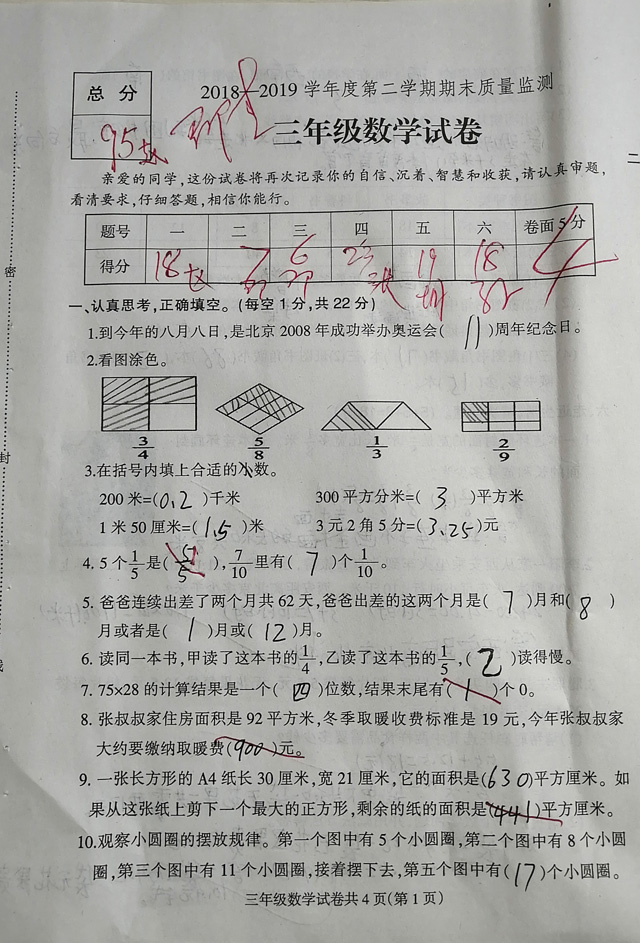 总 分
95
2018—2019 学年度第二学期期末质量监测
三年级数学试卷
亲爱的同学,这份试卷将再次记录你的自信、沉着、智慧和收获,请认真审题,
看清要求,仔细答题,相信你能行。
题号 一 二 三 四 五 六 卷面 5 分
得分 18 7 6 23 19 18 4
一、认真思考,正确填空。(每空 1 分,共 22 分)
1.到今年的八月八日,是北京 2008 年成功举办奥运会( 11 )周年纪念日。
2.看图涂色。
3/4 5/8 1/3 2/9
3.在括号内填上合适的小数。
200 米=(0.2)千米 300 平方分米=( 3 )平方米
1 米 50 厘米=(1.5)米 3 元 2 角 5 分=(3.25)元
4. 5 个 1/5 是( 5/5 ),7/10 里有( 7 )个 1/10。
5. 爸爸连续出差了两个月共 62 天,爸爸出差的这两个月是( 7 )月和( 8 )
月或者是( 1 )月或( 12 )月。
6. 读同一本书,甲读了这本书的 1/4,乙读了这本书的 1/5,( 乙 )读得慢。
7. 75×28 的计算结果是一个( 四 )位数,结果末尾有( 1 )个 0。
8. 张叔叔家住房面积是 92 平方米,冬季取暖收费标准是 19 元,今年张叔叔家
大约要缴纳取暖费(900)元。
9. 一张长方形的 A4 纸长 30 厘米,宽 21 厘米,它的面积是(630)平方厘米。如
果从这张纸上剪下一个最大的正方形,剩余的纸的面积是(441)平方厘米。
10.观察小圆圈的摆放规律。第一个图中有 5 个小圆圈,第二个图中有 8 个小圆
圈,第三个图中有 11 个小圆圈,接着摆下去,第五个图中有(17)个小圆圈。
三年级数学试卷共 4 页(第 1 页)
密
封
线
二